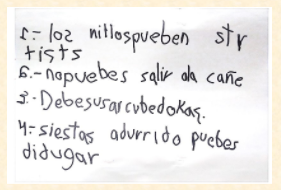 1.- los niñospueben str
tists
2.- nopuebes salir ala cañe
3.- Debesusarcubedokas.
4.- siestas adurrido puebes
didugar